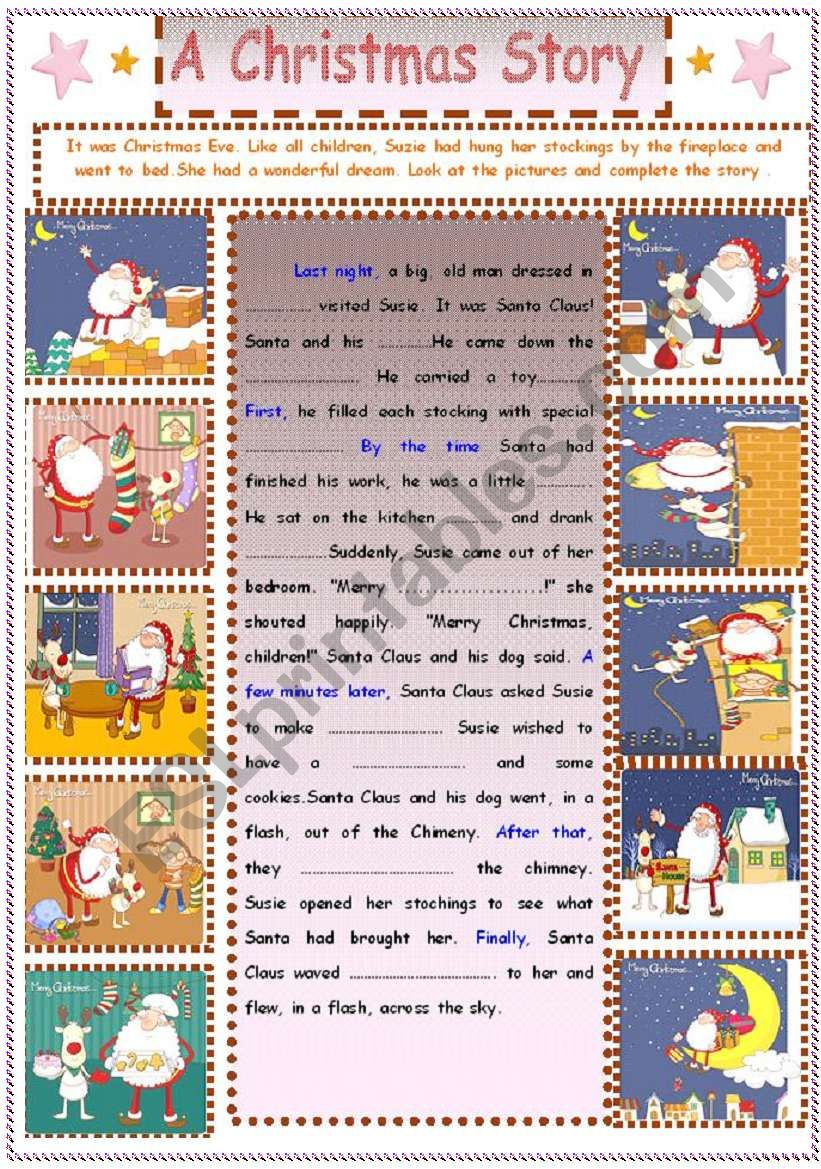 A Christmas Story
It was Christmas Eve. Like all children, Suzie had hung her stockings by the fireplace and
went to bed.She had a wonderful dream. Look at the pictures and complete the story .
Merry Christmas...
Merry Christmas...
Merry Christmas...
Merry Christmas...
Merry Christmas...
Last night, a big old man dressed in
............... visited Susie. It was Santa Claus!
Santa and his ............He came down the
.......................... He carried a toy..........
First, he filled each stocking with special
....................... By the time Santa had
finished his work, he was a little ............ .
He sat on the kitchen ............. and drank
...................Suddenly, Susie came out of her
bedroom. "Merry .....................!" she
shouted happily. "Merry Christmas,
children!" Santa Claus and his dog said. A
few minutes later, Santa Claus asked Susie
to make .......................... Susie wished to
have a .......................... and some
cookies.Santa Claus and his dog went, in a
flash, out of the Chimeny. After that,
they ............................ the chimney.
Susie opened her stochings to see what
Santa had brought her. Finally, Santa
Claus waved ................................. to her and
flew, in a flash, across the sky.
Merry Christmas...
Merry Christmas...
Merry Christmas...
Merry Christmas...
Santa
House
Merry Christmas...
ESLprintables.com